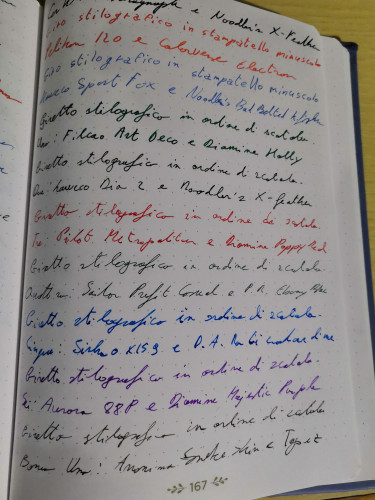 e Noodler's X-Feather
Giro stilografico in stampatello minuscolo
Pelikan 120 e Colorverse Electron
Giro stilografico in stampatello minuscolo
Sport Fox e Noodler's Bad Belted Kingfisher
Giretto stilografico in ordine di scatola.
Uno: Filcao Art Deco e Diamine Holly
Giretto stilografico in ordine di scatola.
Due: Lamco Dia 2 e Noodler's X-Feather
Giretto stilografico in ordine di scatola.
Tre: Pilot Metropolitan e Diamine Poppy Red
Giretto stilografico in ordine di scatola.
Quattro: Sailor Profit e P.R. Ebony
Giretto stilografico in ordine di scatola.
Cinque: X159 e D.A.
Giretto stilografico in ordine di scatola.
Sei: Aurora 88P e Diamine Majestic Purple
Giretto stilografico in ordine di scatola
Bonus Uno: Anonima e Topaz
167